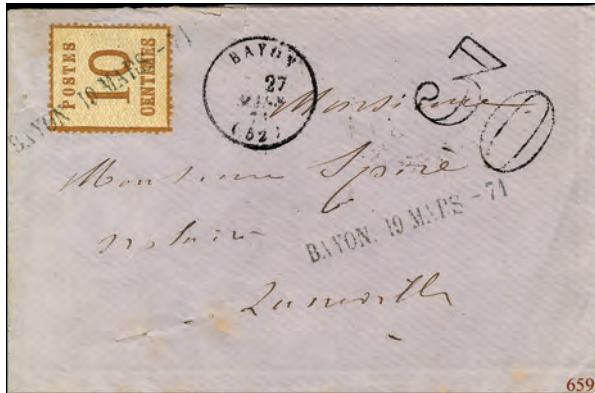 POSTES
10
CENTIMES
BAYON 19 MARS - 71
BAYON
27
MARS
71
(52)
30
Monsieur
Monsieur Spire
notaire
BAYON. 19 MARS - 71
Lunéville
659